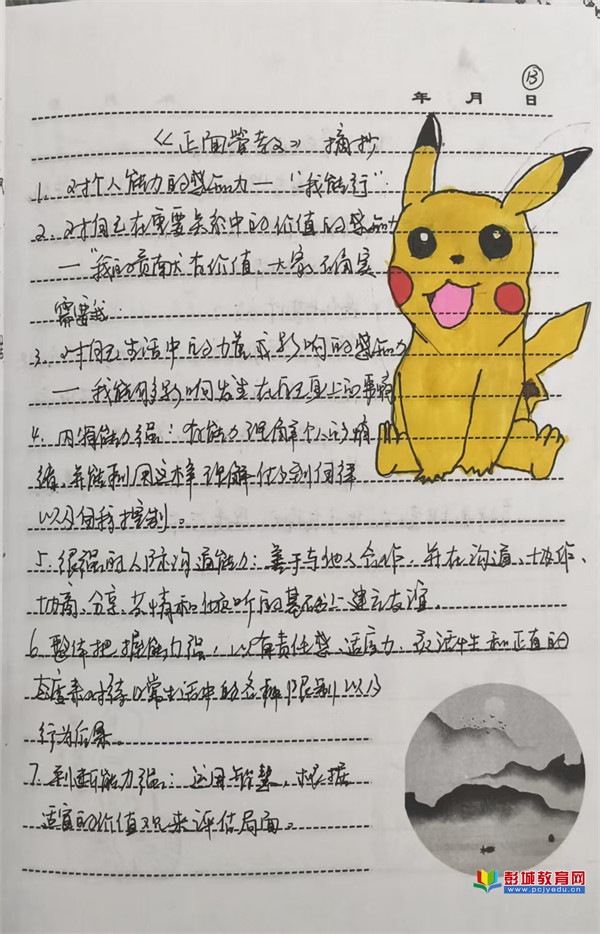 ⑬
年 月 日
《正面管教》摘抄
1. 对个人能力的感知力—“我能行”
2. 对自己在重要关系中的价值的感知力
—“我的贡献有价值,大家确实
需要我
3. 对自己生活中的力量或影响的感知力
— 我能够影响发生在自己身上的事情
4. 内省能力强:有能力理解个人的情
绪,并能利用这种理解做到自律
以及自我控制。
5. 很强的人际沟通能力:善于与他人合作,并在沟通、协作、
协商、分享、共情和倾听的基础上建立友谊。
6. 整体把握能力强,以有责任感、适应力、灵活性和正直的
态度来对待日常生活中的各种限制以及
行为后果。
7. 判断能力强:运用智慧,根据
适宜的价值观来评估局面。
彭城教育网
www.pcjyedu.cn